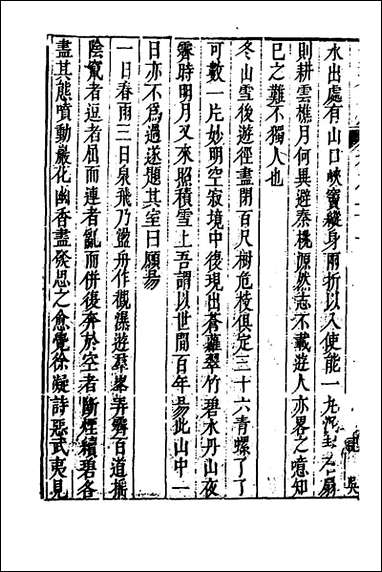 水出處有山口峽竇縱身兩折以入使能一丸泥封之扃
則耕雲樵月何異避秦桃源然志不載遊人亦畧之噫知
己之難不獨人也
冬山雪後遊徑盡閉百尺樹危枝俱定三十六青螺了了
可數一片妙明空寂境中復現出蒼蘿翠竹碧水丹山夜
霽時明月又來照積雪上吾謂以世間百年易此山中一
日亦不為過遂題其室曰願易
一日春雨三日泉飛乃盪舟作觀瀑遊羣峯弄霽百道搖
陰竄者逗者屈而連者亂而併復奔於空者斷煙續碧各
盡其態噴動巖花幽香盡發思之愈覺徐凝詩惡武夷見
吳